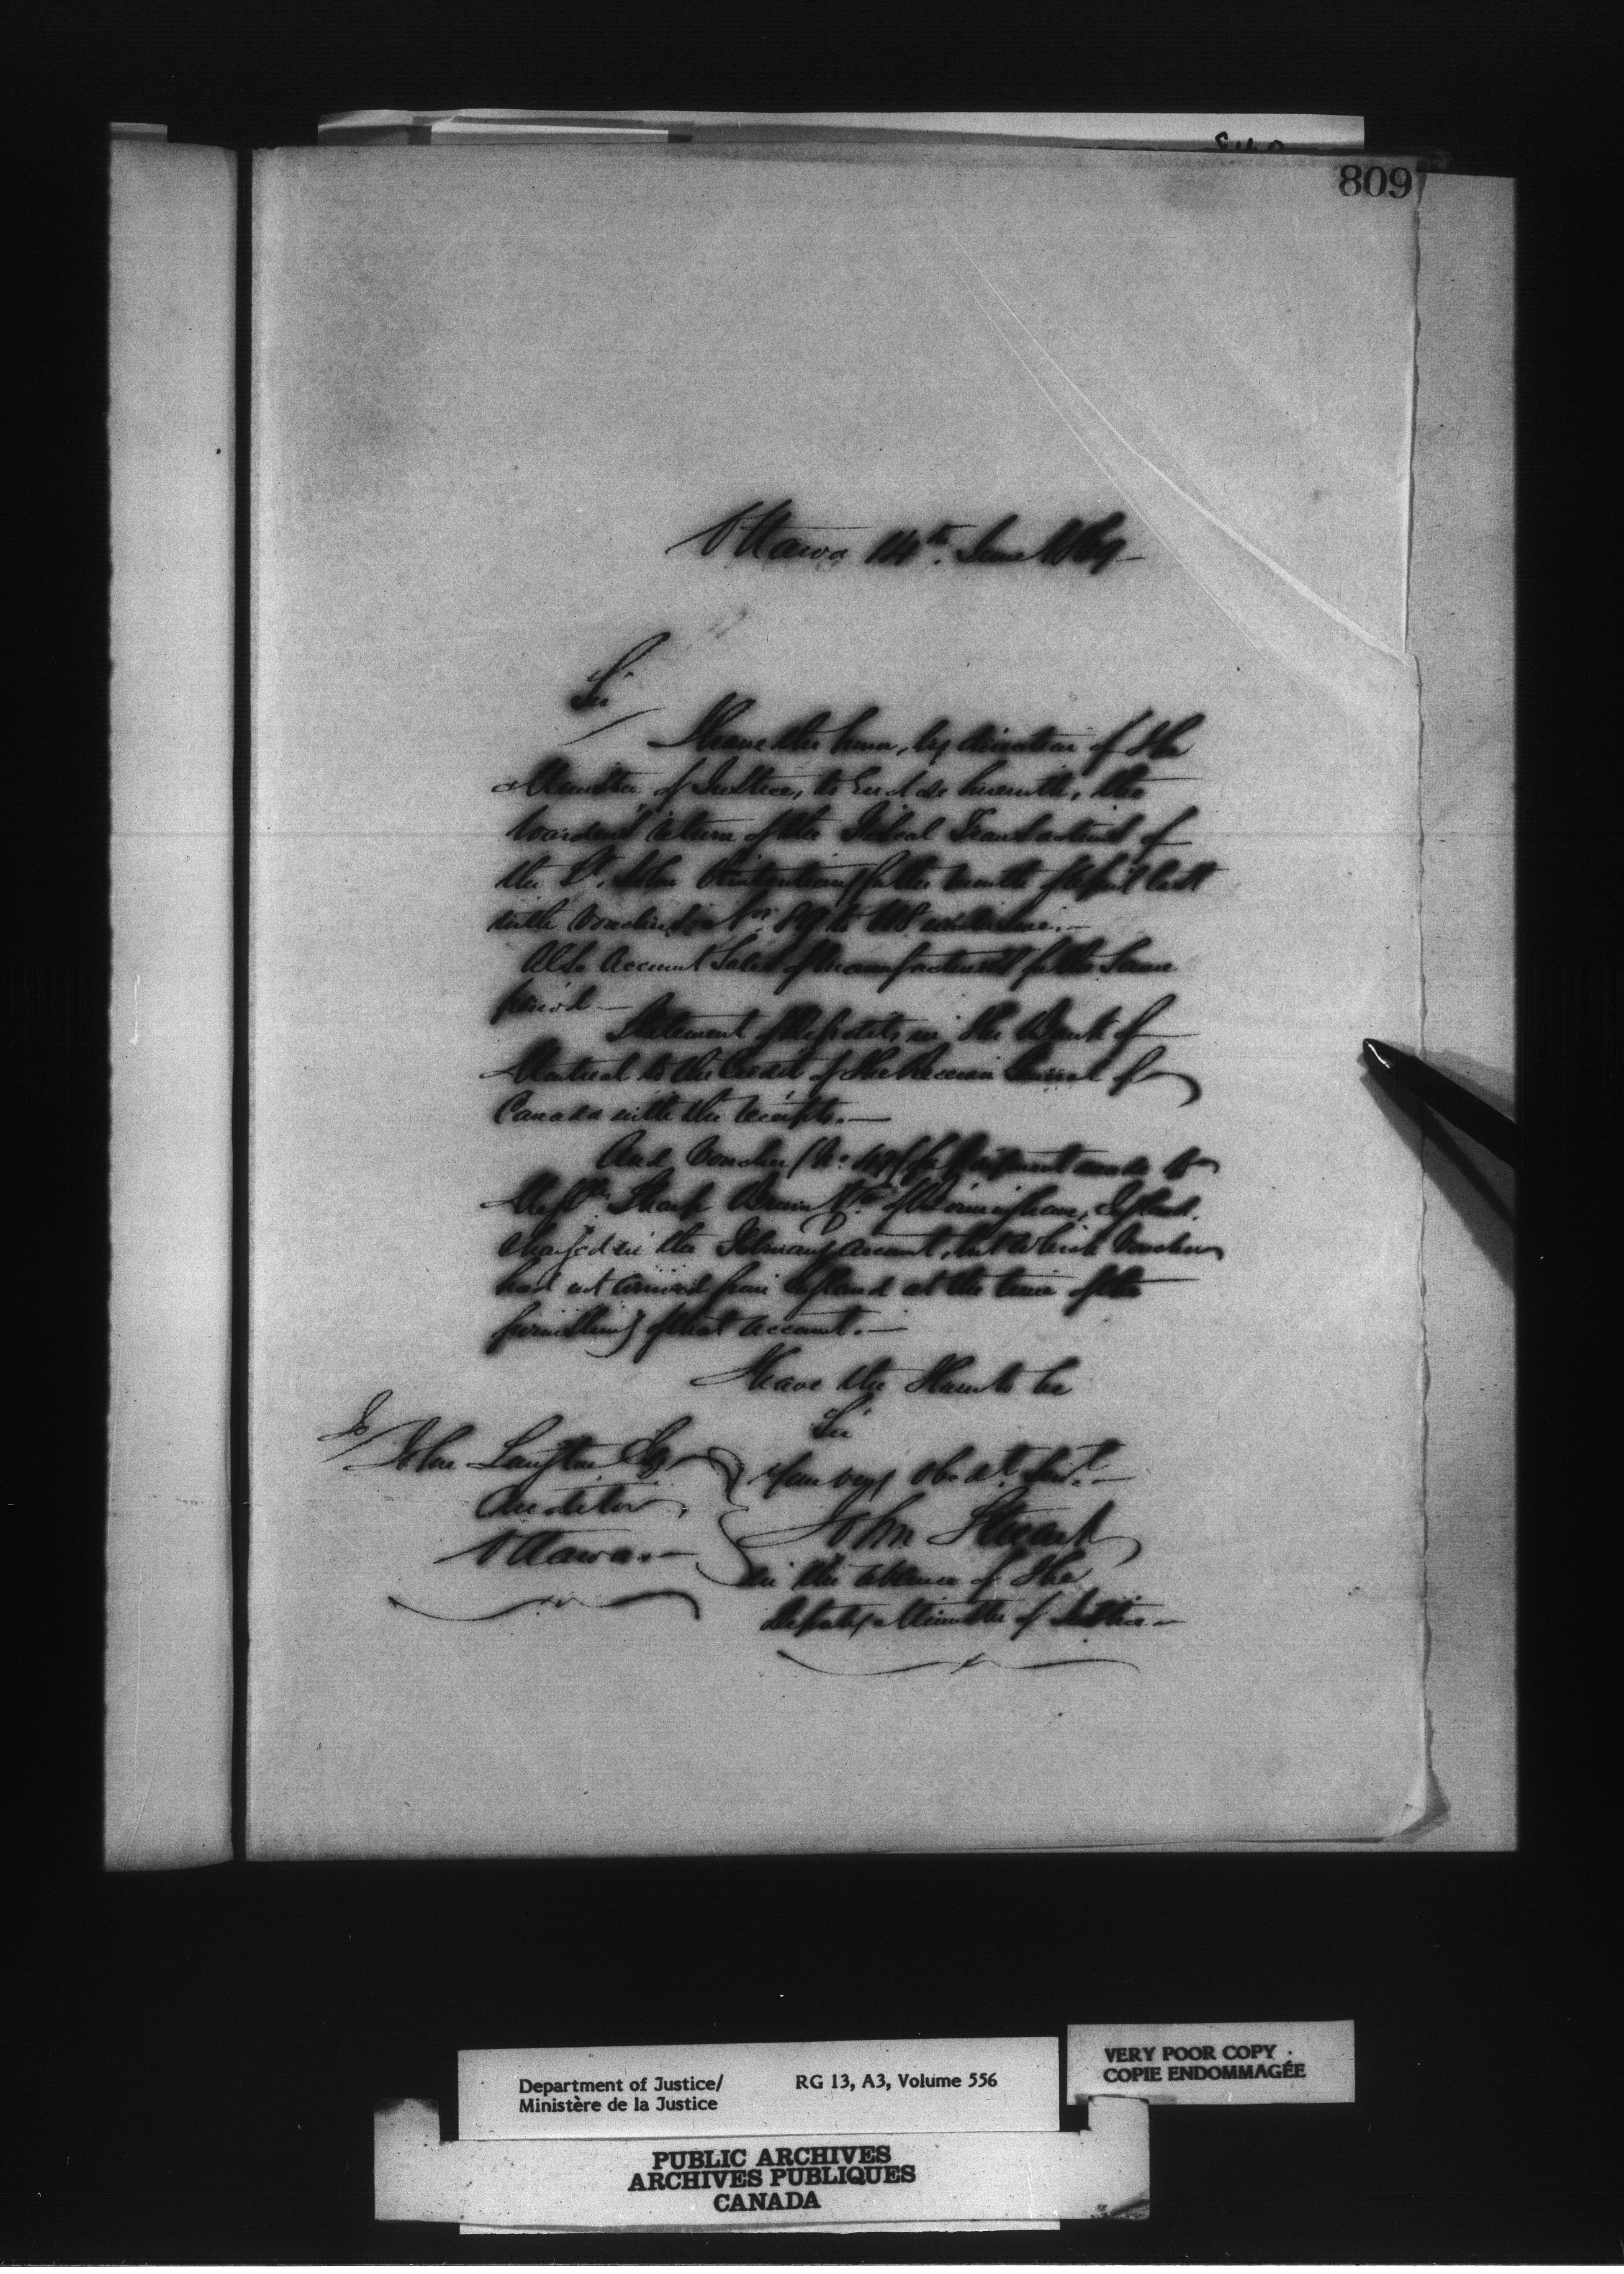 809
Ottawa 14th. June 1869
Sir
I have the honor, by direction of the
Minister of Justice, to Enclose herewith, the
Warden's return of the Fiscal Transactions of
the St. John Penitentiary for the month of April last
with Vouchers Nos. 89 to 118 inclusive.
Also Account Sales of manufactures for the same
period
Statement of deposits in the Bank of
Montreal to the Credit of the Receiver General of
Canada with the receipts.
And Voucher (No. 49) for payment made to
Messrs. Sharp Brown & Co. of Birmingham, England,
charged in the February account, but which Voucher
had not arrived from England at the time of the
furnishing of that account.
I have the Honor to be
Sir
Your very Obedt. Servt.
John Stewart
in the absence of the
Deputy Minister of Justice
To
John Langton Esqr
Auditor,
Ottawa.
Department of Justice/ RG 13, A3, Volume 556
Ministère de la Justice
VERY POOR COPY
COPIE ENDOMMAGÉE
PUBLIC ARCHIVES
ARCHIVES PUBLIQUES
CANADA